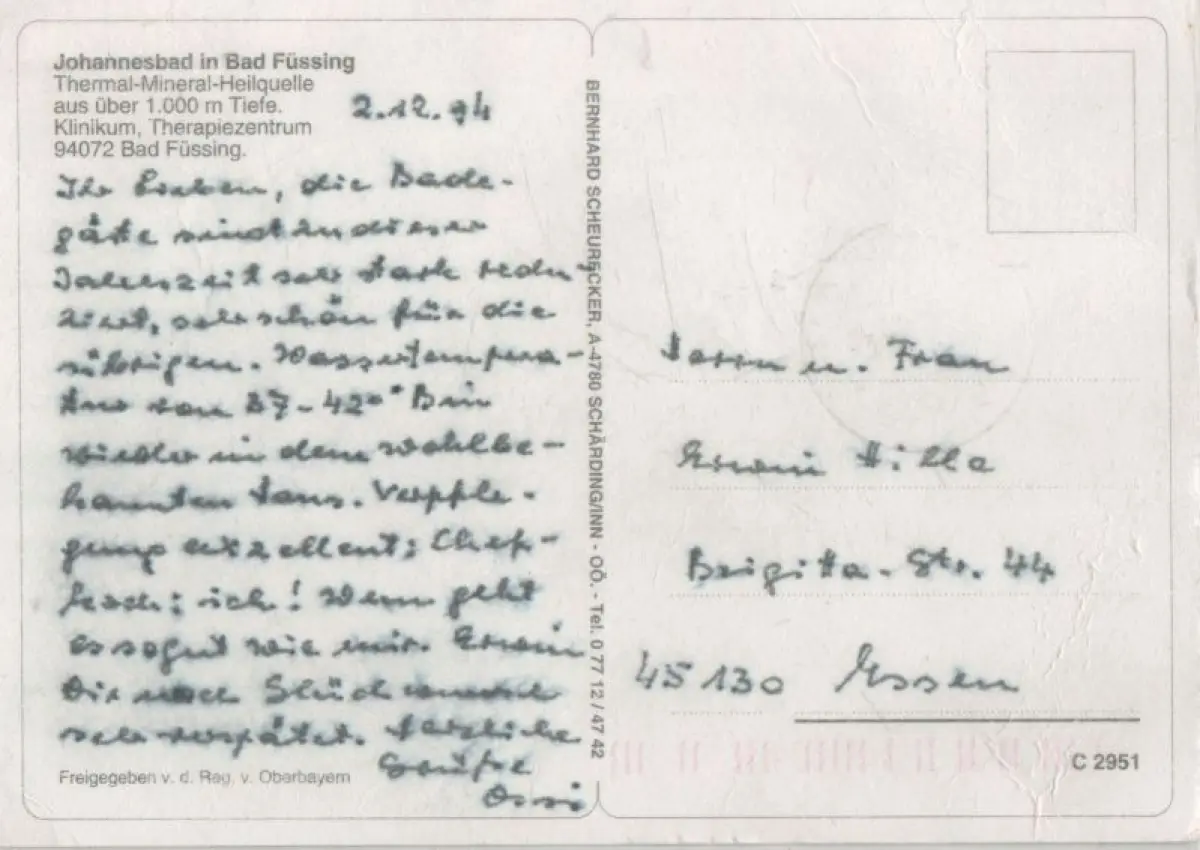 Johannesbad in Bad Füssing
Thermal-Mineral-Heilquelle
aus über 1.000 m Tiefe.
Klinikum, Therapiezentrum
94072 Bad Füssing.
2.12.94
Ihr Lieben, die Bade-
gäste sind in dieser
Jahreszeit sehr stark redu-
ziert, sehr schön für die
übrigen. Wassertempera-
tur von 27-42° Bin
wieder in dem wohlbe-
kannten Haus. Verpfle-
gung exzellent; Chef-
koch: ich! Wem geht
es so gut wie mir. Erwin
Dir noch Glückwunsch
sehr verspätet. Herzliche
Grüße
Ossi
Freigegeben v. d. Reg. v. Oberbayern
BERNHARD SCHEURECKER, A-4780 SCHÄRDING/INN - OÖ. - Tel. 0 77 12 / 47 42
Herrn u. Frau
Erwin Hille
Brigitta-Str. 44
45130 Essen
C 2951